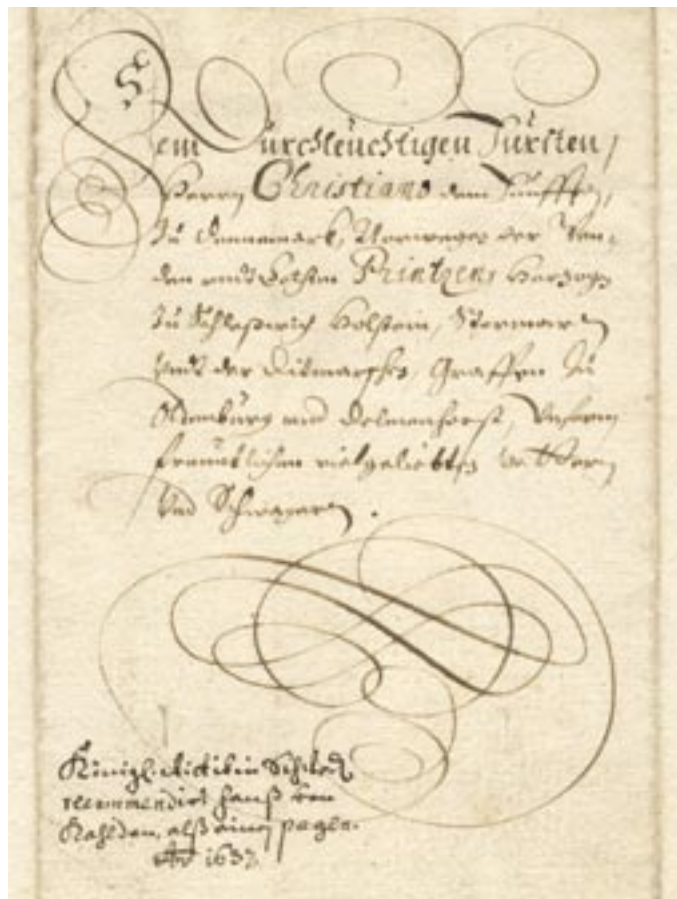 Dem Durchleuchtigen Fürsten,
Herrn Christiano dem Fünfften,
Zu Dennemark, Norwegen der Wen,
den undt Gothen Printzen, Hertzogen
Zu Schleßwich Holstein, Stormarn
Undt der Ditmarschen, Graffen Zu
Oldenburg und Delmenhorst, Unserm
freundtlichen vielgeliebten Vettern
Und Schwagern.
Königl. in Schwed.
recommendirt Hanß von
Kahlden, alß einen pagen.
Ao 1637